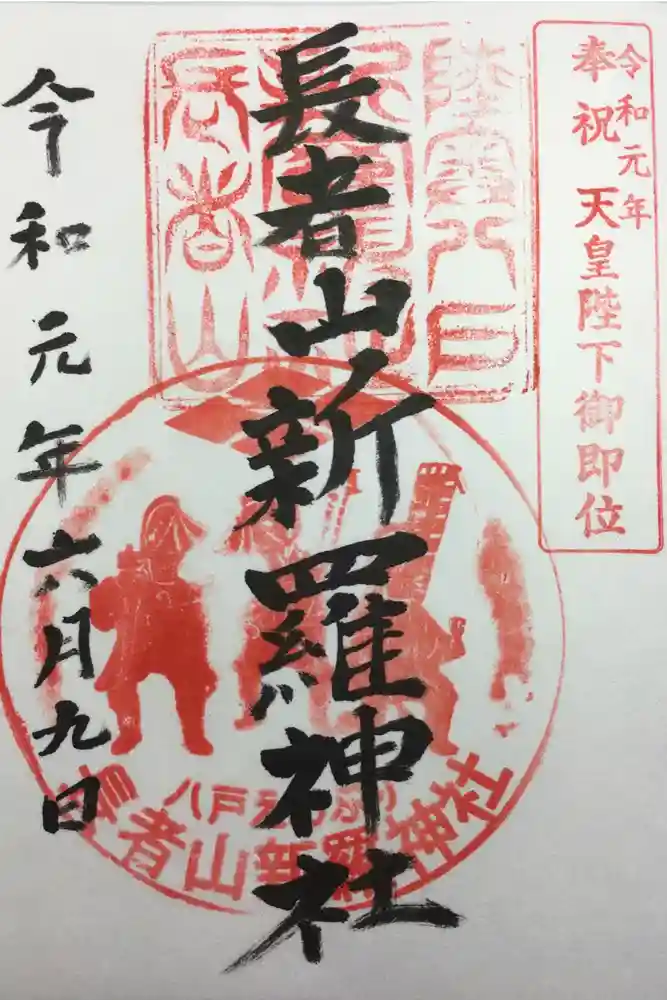 令和元年
奉祝 天皇陛下御即位
長者山新羅神社
令和元年六月九日
八戸えんぶり
長者山新羅神社